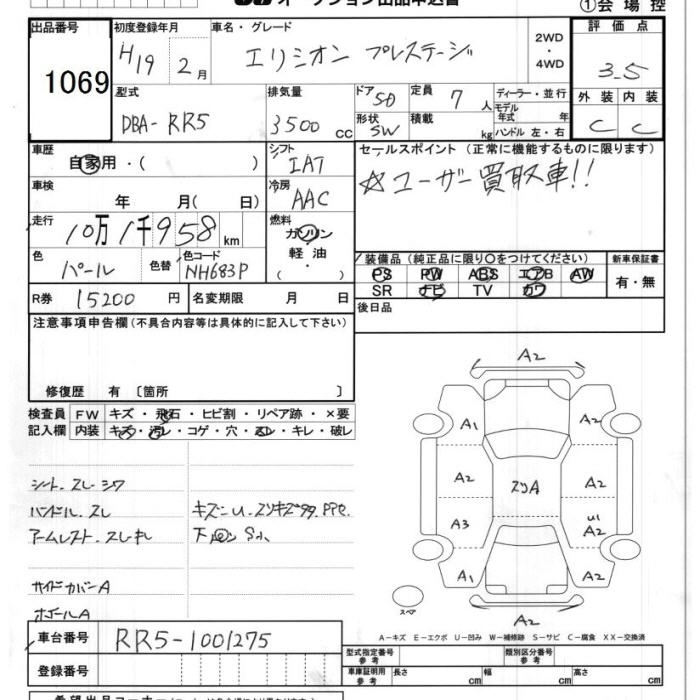 オークション出品申込書
①会場控
出品番号 初度登録年月 車名・グレード 2WD ・ 4WD 評価点
1069 H19 2月 エリシオン プレステージ 3.5
型式 排気量 ドア 5D 定員 7人 ディーラー・並行 外装 内装
DBA-RR5 3500cc 形状 SW 積載 kg モデル年式 年 ハンドル 左・右 C C
車歴 自家用・( ) シフト IAT セールスポイント (正常に機能するものに限ります)
車検 年 月( 日) 冷房 AAC ☆ユーザー買取車!!
走行 10万1千958km 燃料 ガソリン 軽油 ・ ( )
色 パール 色替 色コード NH683P 装備品 (純正品に限り○をつけてください) 新車保証書
PS PW ABS エアB AW 有・無
SR ナビ TV カワ
R券 15200円 名変期限 月 日 後日品
注意事項申告欄 (不具合内容等は具体的に記入して下さい)
修復歴 有 〔箇所 〕
検査員 FW キズ・飛石・ヒビ割・リペア跡・×要
記入欄 内装 キズ・汚レ・コゲ・穴・スレ・キレ・破レ
シート.スレ・シワ
ハンドル.スレ
アームレスト.スレキレ
サイドカバーA
ホイールA
A2
A1 A2
A2 スリA A2
A3 U1 A2
A1 A2
A2
スペア
A－キズ E－エクボ U－凹み W－補修跡 S－サビ C－腐食 XX－交換済
車台番号 RR5-1001275
登録番号
型式指定番号 参考 類別区分番号 参考
車庫証明用 参考 長さ cm 幅 cm 高さ cm